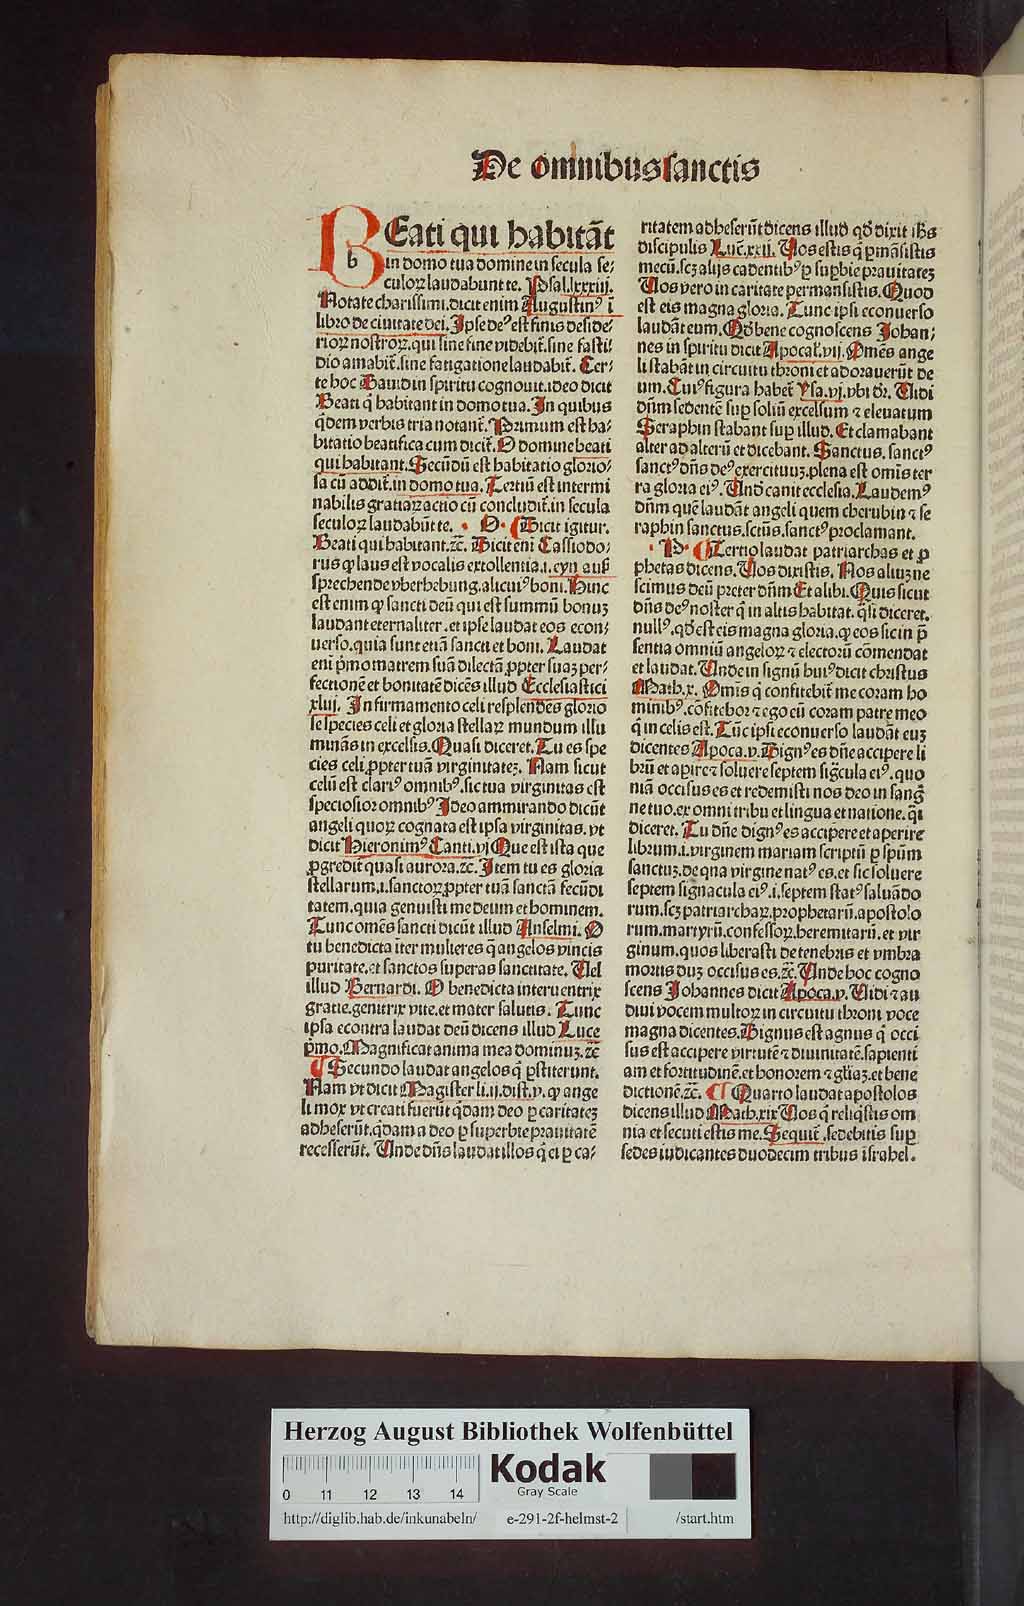 De omnibus sanctis
BEati qui habitāt
b
in domo tua domine in secula se⸗
culoꝝ laudabunt te. Psal. lxxxiij.
Notate charissimi. dicit enim Augustinꝰ ī
libro de ciuitate dei. Ipse deꝰ est finis deside⸗
rioꝝ nostroꝝ. qui sine fine videbit̄. sine fasti⸗
dio amabit̄. sine fatigatione laudabit̄. Cer⸗
te hoc Dauid in spiritu cognouit. ideo dicit
Beati q̇ habitant in domo tua. In quibus
q̇dem verbis tria notant̄. Primum est ha⸗
bitatio beatifica cum dicit̄. O domine beati
qui habitant. Secūdū est habitatio glorio⸗
sa cū addit̄. in domo tua. Tertiū est intermi
nabilis gratiaꝝ actio cū concludit̄. in secula
seculoꝝ laudabūt te. · O · ¶ Dicit igitur.
Beati qui habitant. ⁊c̄. Dicit eni Cassiodo⸗
rus ꝙ laus est vocalis extollentia. i. eyn auß
sprechende vberhebung. alicuiꝰ boni. Hinc
est enim ꝙ sancti deū qui est summū bonuꝫ
laudant eternaliter. et ipse laudat eos econ⸗
uerso. quia sunt etiā sancti et boni. Laudat
eni p̄mo matrem suā dilectā ꝓpter suaꝫ per⸗
fectionē et bonitatē dicēs illud Ecclesiastici
xliij. In firmamento celi resplendēs glorio
se species celi et gloria stellaꝝ mundum illu
minās in excelsis. Quasi diceret. Tu es spe
cies celi ꝓpter tuā virginitateꝫ. Nam sicut
celū est clariꝰ omnibꝰ. sic tua virginitas est
speciosior omnibꝰ Ideo ammirando dicūt
angeli quoꝝ cognata est ipsa virginitas. vt
dicit Hieronimꝰ Canti. vj Que est ista que
ꝓgredit̄ quasi aurora. ⁊c̄. Item tu es gloria
stellarum. i. sanctoꝝ ꝓpter tuā sanctā fecūdi
tatem. quia genuisti me deum et hominem.
Tunc omēs sancti dicūt illud Anselmi. O
tu benedicta īter mulieres q̄ angelos vincis
puritate. et sanctos superas sanctitate. Uel
illud Bernardi. O benedicta interuentrix
gratie. genitrix vite. et mater salutis. Tunc
ipsa econtra laudat deū dicens illud Luce
p̄mo. Magnificat anima mea dominuꝫ. ⁊c̄
¶ Secundo laudat angelos q̇ ꝑstiterunt.
Nam vt dicit Magister li. ij. dist. v. ꝙ ange
li mox vt creati fuerūt q̇dam deo ꝑ caritateꝫ
adheserūt. q̇dam a deo ꝑ superbie prauitatē
recesserūt. Unde dn̄s laudat illos q̇ ei ꝑ ca⸗
ritatem adheserūt dicens illud qḋ dixit ih̄s
discipulis Luc̄. xxij. Uos estis q̇ ꝑmāsistis
mecū. scꝫ alijs cadentibꝰ ꝑ suꝑbie prauitateꝫ
Uos vero in caritate permansistis. Quod
est eis magna gloria. Tunc ipsi econuerso
laudāt eum. Qḋ bene cognoscens Johan⸗
nes in spiritu dicit Apocal̄. vij. Omēs ange
li stabāt in circuitu throni et adorauerūt de
um. Cuiꝰ figura habet̄ Ysa. vj. vbi dr̄. Uidi
dn̄m sedentē suꝑ soliū excelsum ⁊ eleuatum
Seraphin stabant suꝑ illud. Et clamabant
alter ad alterū et dicebant. Sanctus. sanctꝰ
sanctꝰ dn̄s deꝰ exercituuꝫ. plena est omīs ter
ra gloria eiꝰ. Un̄ canit ecclesia. Laudemꝰ
dn̄m quē laudāt angeli quem cherubin ⁊ se
raphin sanctus. sct̄us. sanctꝰ proclamant.
· P · ¶ Tertio laudat patriarchas et ꝓ
phetas dicens. Uos dixistis. Nos aliuꝫ ne
scimus deū preter dn̄m Et alibi. Quis sicut
dn̄s deꝰ noster q̇ in altis habitat. q̄si diceret.
nullꝰ. qḋ est eis magna gloria. ꝙ eos sic in p̄
sentia omniū angeloꝝ ⁊ electorū cōmendat
et laudat. Unde in signū huiꝰ dicit christus
Math. x. Omīs q̇ confitebit̄ me coram ho
minibꝰ. cōfitebor ⁊ ego eū coram patre meo
q̇ in celis est. Tūc ipsi econuerso laudāt euꝫ
dicentes Apoca. v. Dignꝰ es dn̄e accipere li
brū et apire ⁊ soluere septem sig̈cula eiꝰ. quo
niā occisus es et redemisti nos deo in sang̈
ne tuo. ex omni tribu et lingua et natione. q̄si
diceret. Tu dn̄e dignꝰ es accipere et aperire
librum. i. virginem mariam scriptū ꝑ spūm
sanctuꝫ. de qua virgine natꝰ es. et sic soluere
septem signacula eiꝰ. i. septem statꝰ saluādo
rum. scꝫ patriarchaꝝ. prophetarū. apostolo
rum. martyrū. confessoꝝ. heremitarū. et vir
ginum. quos liberasti de tenebris et vmbra
mortis duꝫ occisus es. ⁊c̄. Unde hoc cogno
scens Johannes dicit Apoca. v. Uidi ⁊ au
diui vocem multoꝝ in circuitu throni voce
magna dicentes. Dignus est agnus q̇ occi
sus est accipere virtutē ⁊ diuinitatē. sapienti
am et fortitudinē. et honorem ⁊ gl̄iaꝫ. et bene
dictionē. ⁊c̄. ¶ Quarto laudat apostolos
dicens illud Math. xix Uos q̇ reliq̇stis om
nia et secuti estis me. Sequit̄. sedebitis suꝑ
sedes iudicantes duodecim tribus israhel.
Herzog August Bibliothek Wolfenbüttel
Kodak
Gray Scale
0 11 12 13 14
http://diglib.hab.de/inkunabeln/ e-291-2f-helmst-2 /start.htm